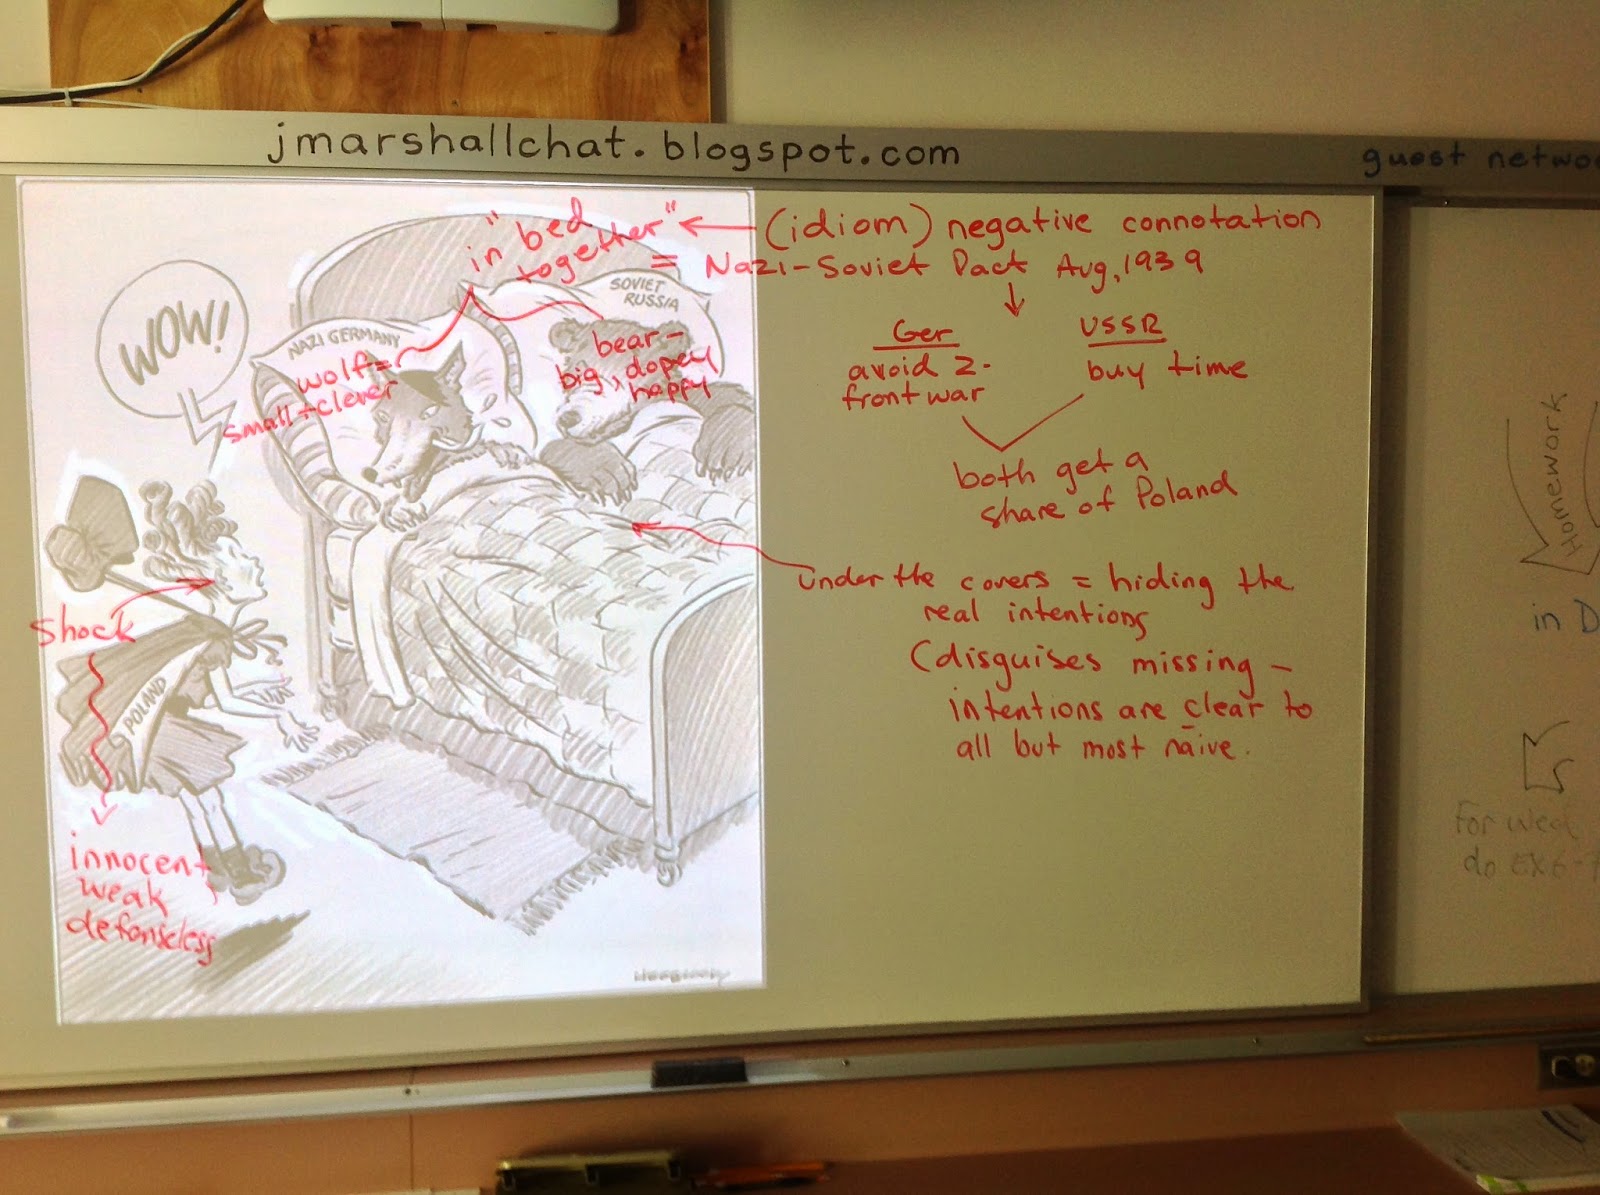 jmarshallchat.blogspot.com
guest netwo
"in bed
together"
(idiom) negative connotation
= Nazi-Soviet Pact Aug, 1939
Ger
avoid 2-
front war
USSR
buy time
both get a
share of Poland
under the covers = hiding the
real intentions
(disguises missing -
intentions are clear to
all but most naive.
WOW!
NAZI GERMANY
wolf =
small + clever
SOVIET
RUSSIA
bear -
big, dopey
happy
Shock
POLAND
innocent
weak
defenseless
Homework
in D
For Wed
do EX 6-